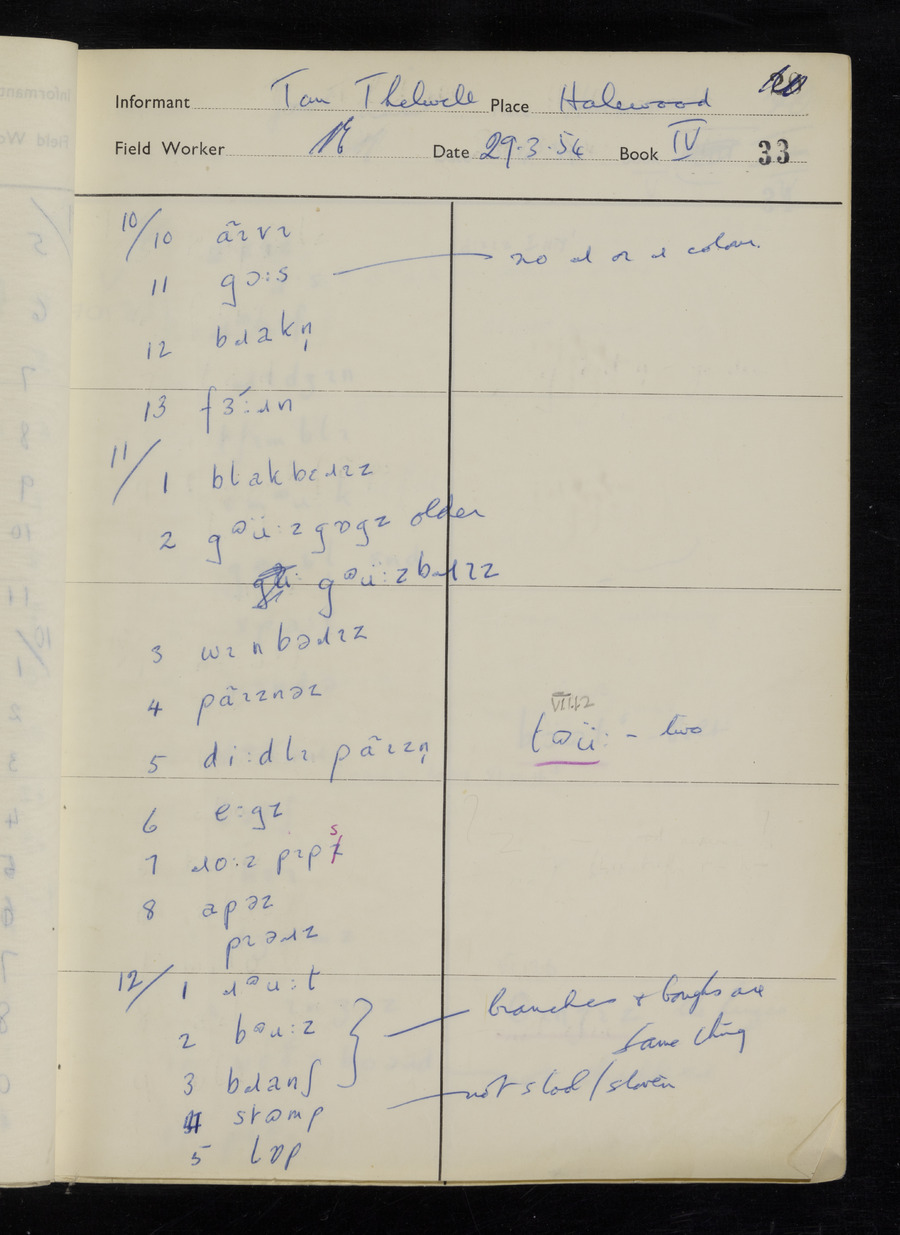 Informant Tom Thelwell Place Halewood
Field Worker Date 29.3.54 Book IV 33
10/10 ãɪvɪ
11 gɔːs no ɹ or ɹ colour.
12 bɹakn̩
13 fɜ́ːɹn
11/1 blakbɛɹɪz
2 gᵊüːzgɒgz older
gᵊüːzbɹɪz
3 wɪnbəɹɪz
4 pãɪznəz
VII.1.2
5 diːdlɪ pãɪzn̩ tᵊüː - two
6 eːgz
7 ɹoːz pɪps
8 apəz
pɪəɹz
12/1 ɹᵊuːt
2 bəuːz branches + boughs are
same thing
3 bɹanʃ
4 stɵmp not stod / stoven
5 lɒp